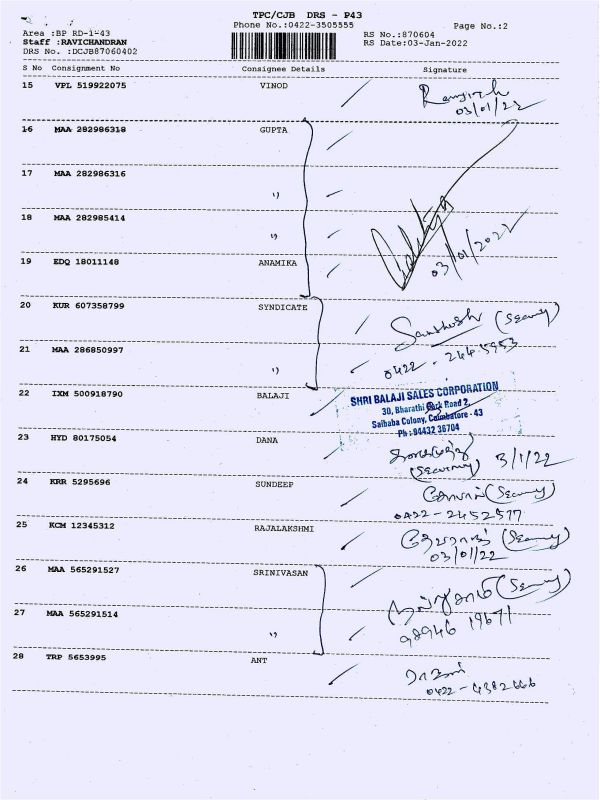 TPC/CJB DRS - P43
Phone No.:0422-3505555
Page No.:2
Area :BP RD-1-43
Staff :RAVICHANDRAN
DRS No. :DCJB87060402
RS No.:870604
RS Date:03-Jan-2022
S No Consignment No Consignee Details Signature
15 VPL 519922075 VINOD
03/01/22
16 MAA 282986318 GUPTA
17 MAA 282986316 "
18 MAA 282985414 "
03/01/2022
19 EDQ 18011148 ANAMIKA
20 KUR 607358799 SYNDICATE
Santhosh (Security)
21 MAA 286850997 "
0422 - 2445953
22 IXM 500918790 BALAJI
SHRI BALAJI SALES CORPORATION
30, Bharathi Park Road 2,
Saibaba Colony, Coimbatore - 43
Ph : 94432 36704
23 HYD 80175054 DANA
(Security) 3/1/22
24 KRR 5295696 SUNDEEP
(Security)
0422-2452577
25 KCM 12345312 RAJALAKSHMI
(Security)
03/01/22
26 MAA 565291527 SRINIVASAN
(Security)
27 MAA 565291514 "
98946 19671
28 TRP 5653995 ANT
0422-4382666